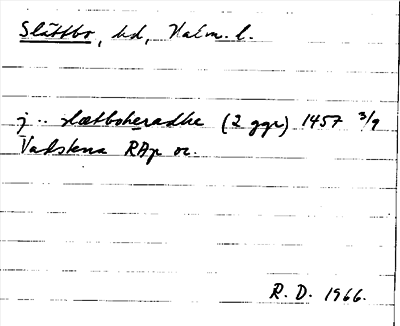 Slättbo, hd, Kalm. l.
j .. slætboheradhe (2 ggr) 1457 3/9
Vadstena RAp or.
R. D. 1966.